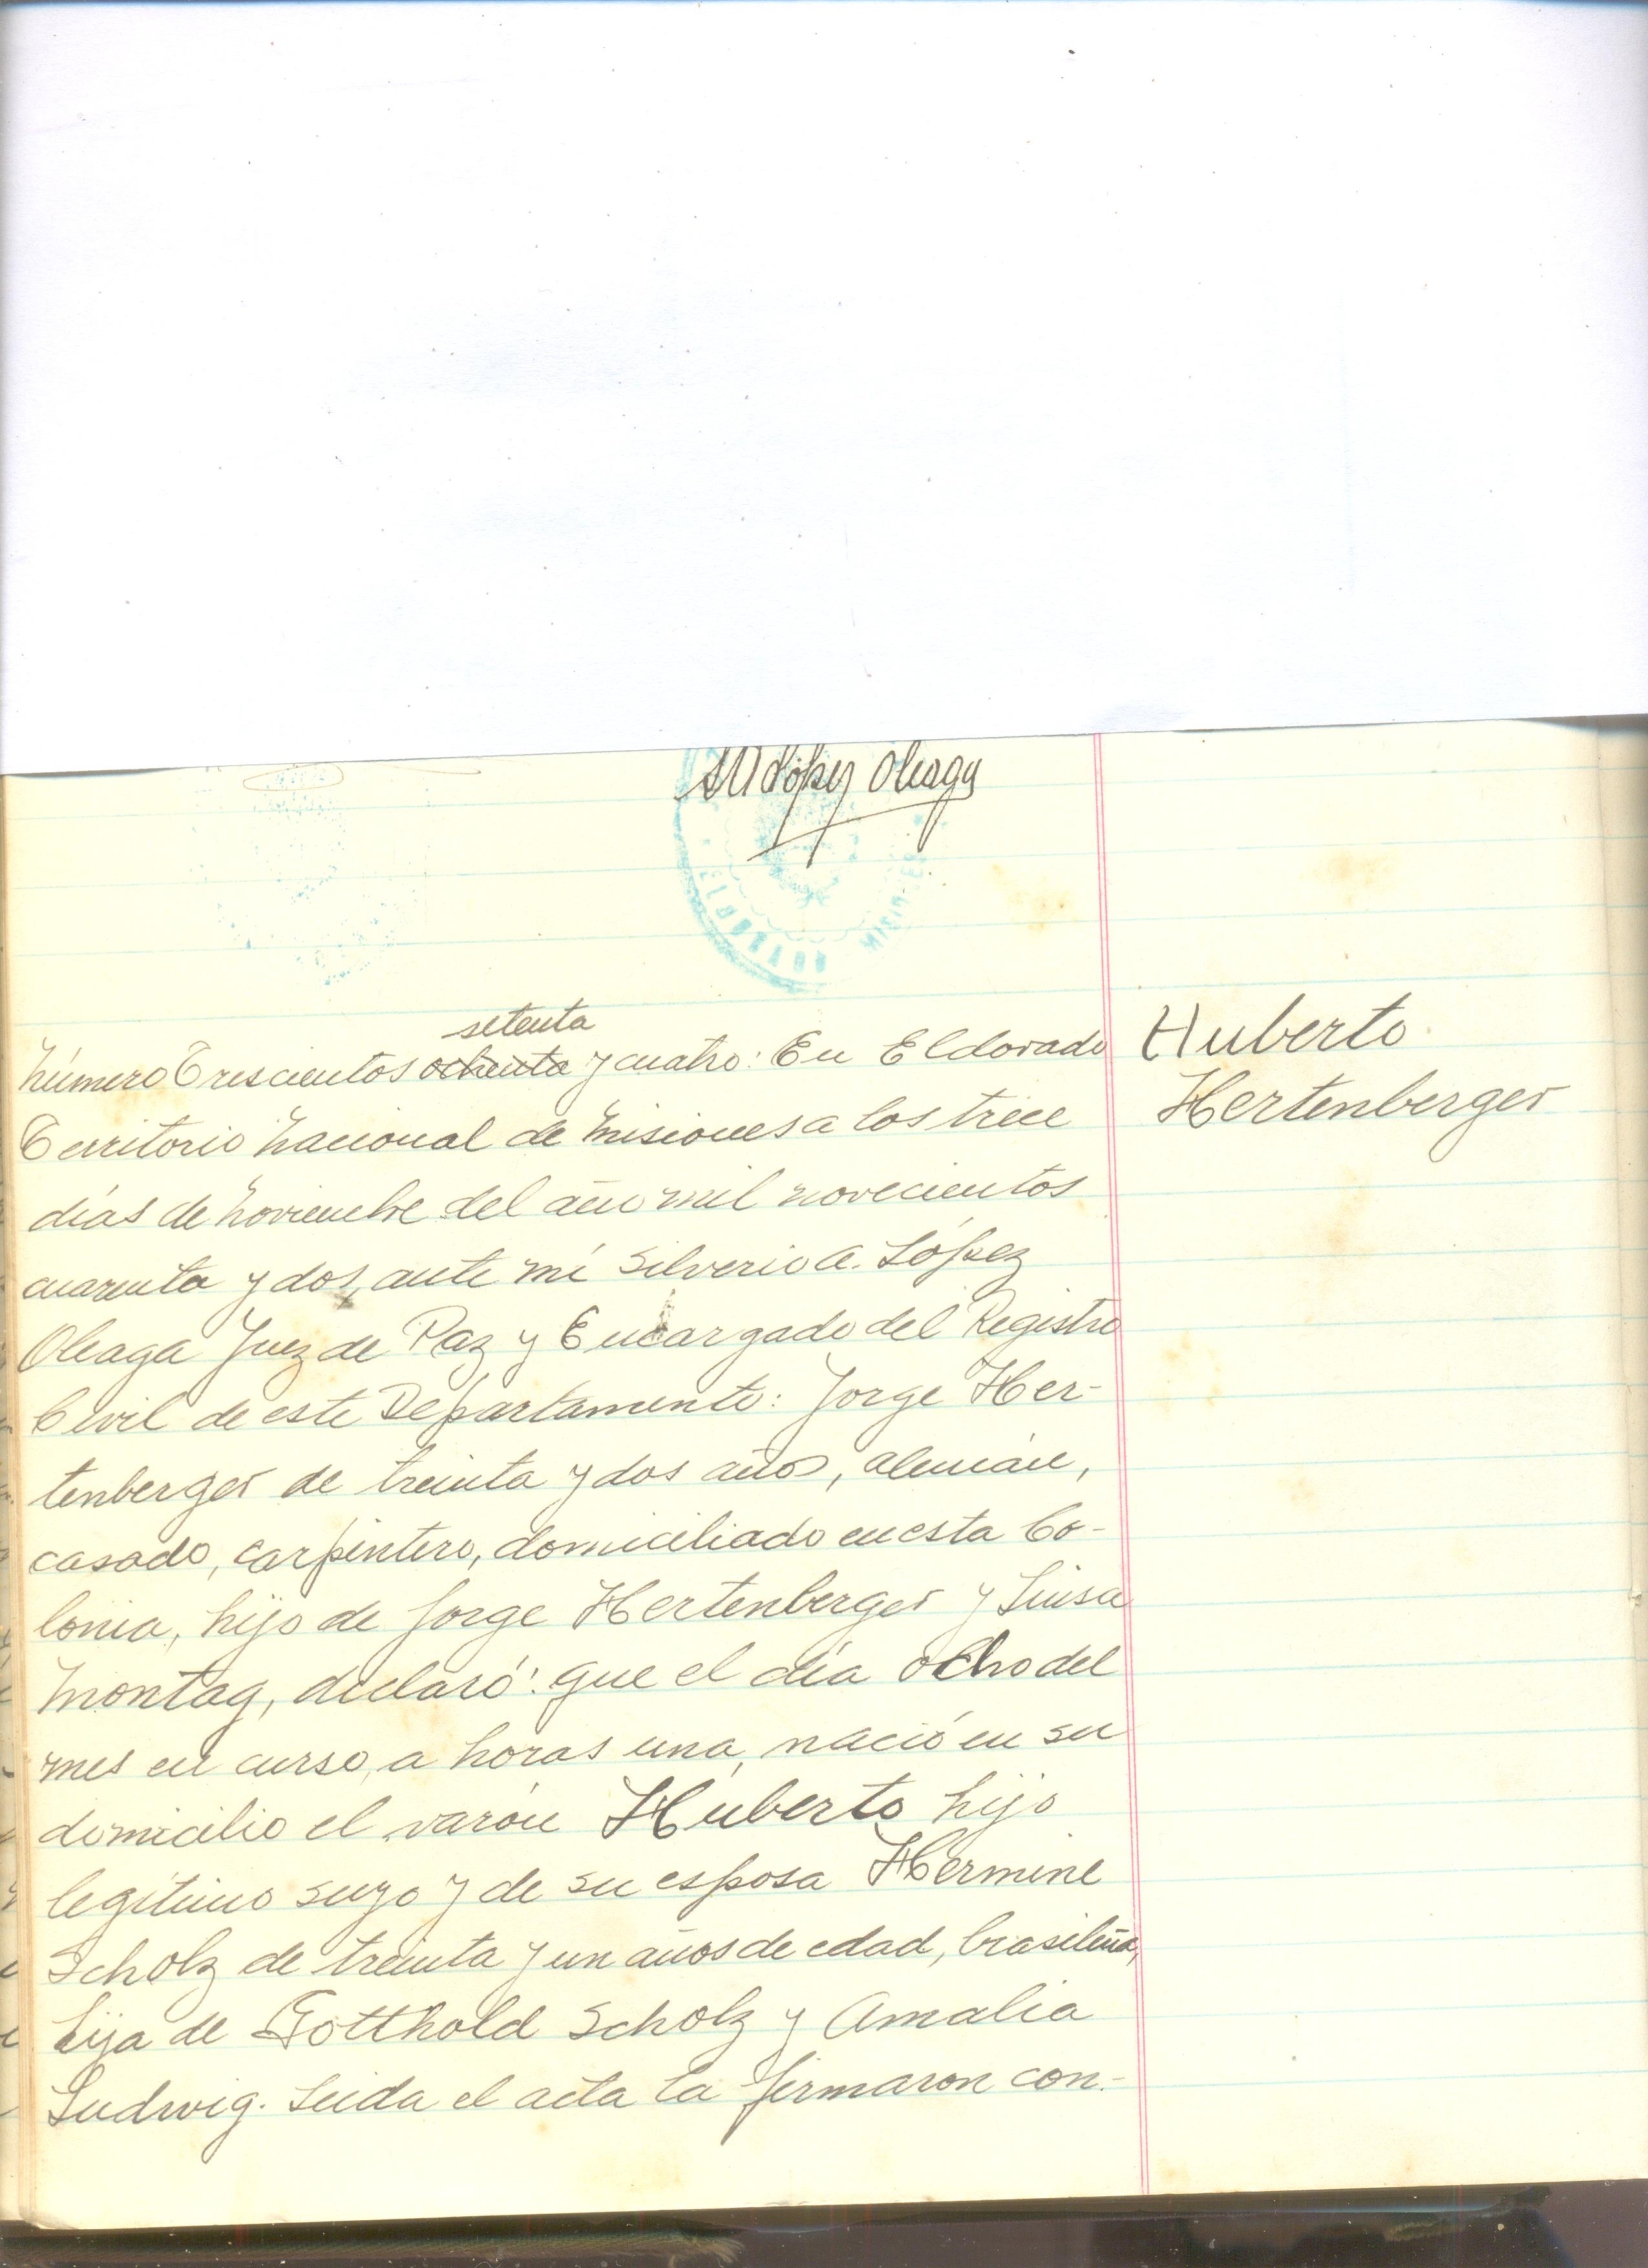 López Oleaga
ELDORADO MISIONES
setenta
Número Trescientos ochenta y cuatro: En Eldorado
Territorio Nacional de Misiones a los trece
días de Noviembre del año mil novecientos
cuarenta y dos, ante mí Silverio A. López
Oleaga Juez de Paz y Encargado del Registro
Civil de este Departamento: Jorge Her-
tenberger de treinta y dos años, alemán,
casado, carpintero, domiciliado en esta Co-
lonia, hijo de Jorge Hertenberger y Luisa
Montag, declaró: que el día ocho del
mes en curso, a horas una, nació en su
domicilio el varón Huberto hijo
legítimo suyo y de su esposa Hermine
Scholz de treinta y un años de edad, brasileña,
hija de Gotthold Scholz y Amalia
Ludwig. Leida el acta la firmaron con-
Huberto
Hertenberger